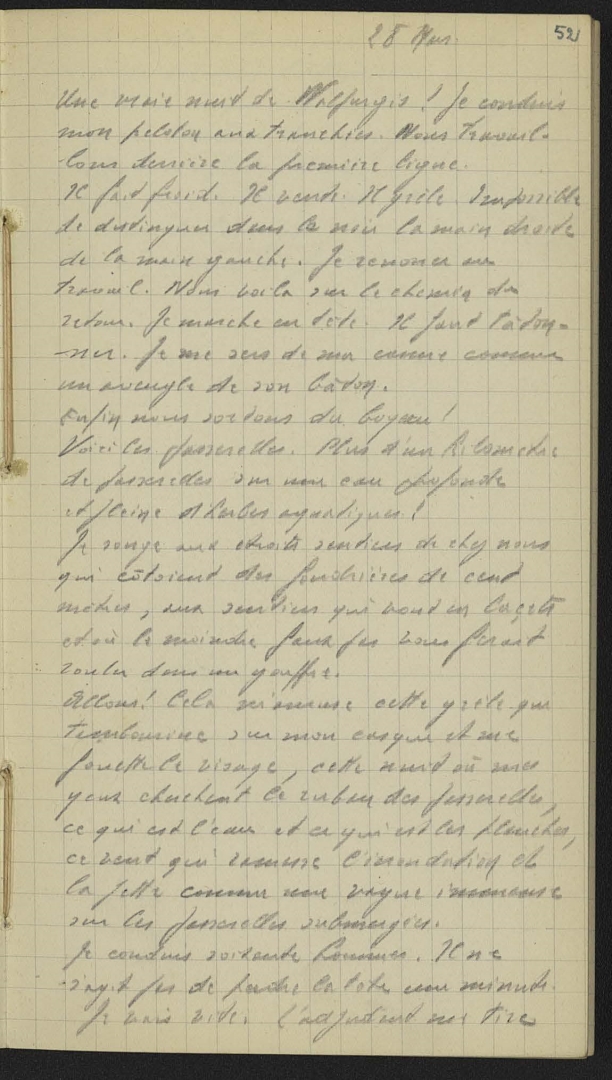 28 Mars. 52
Une vraie nuit de Walpurgis ! Je conduis
mon peloton aux tranchées. Nous travail-
lons derrière la première ligne.
Il fait froid. Il vente. Il grêle. Impossible
de distinguer dans le noir la main droite
de la main gauche. Je renonce au
travail. Nous voilà sur le chemin du
retour. Je marche en tête. Il faut tâton-
ner. Je me sers de ma canne comme
un aveugle de son bâton.
Enfin nous sortons du boyau !
Voici les passerelles. Plus d'un kilomètre
de passerelles sur une eau profonde
et pleine d'herbes aquatiques !
Je songe aux étroits sentiers de chez nous
qui côtoient des fondrières de cent
mètres, aux sentiers qui vont en lacets
et où le moindre faux pas vous ferait
rouler dans un gouffre.
Allons ! Cela m'amuse cette grêle qui
tambourine sur mon casque et me
fouette le visage, cette nuit où mes
yeux cherchent le ruban des passerelles,
ce qui est l'eau et ce qui est les planches,
ce vent qui ramasse l'inondation et
la jette comme une vague immense
sur les passerelles submergées.
Je conduis soixante hommes. Il ne
s'agit pas de perdre la tête une minute.
Je vais vite. L'adjudant me tire